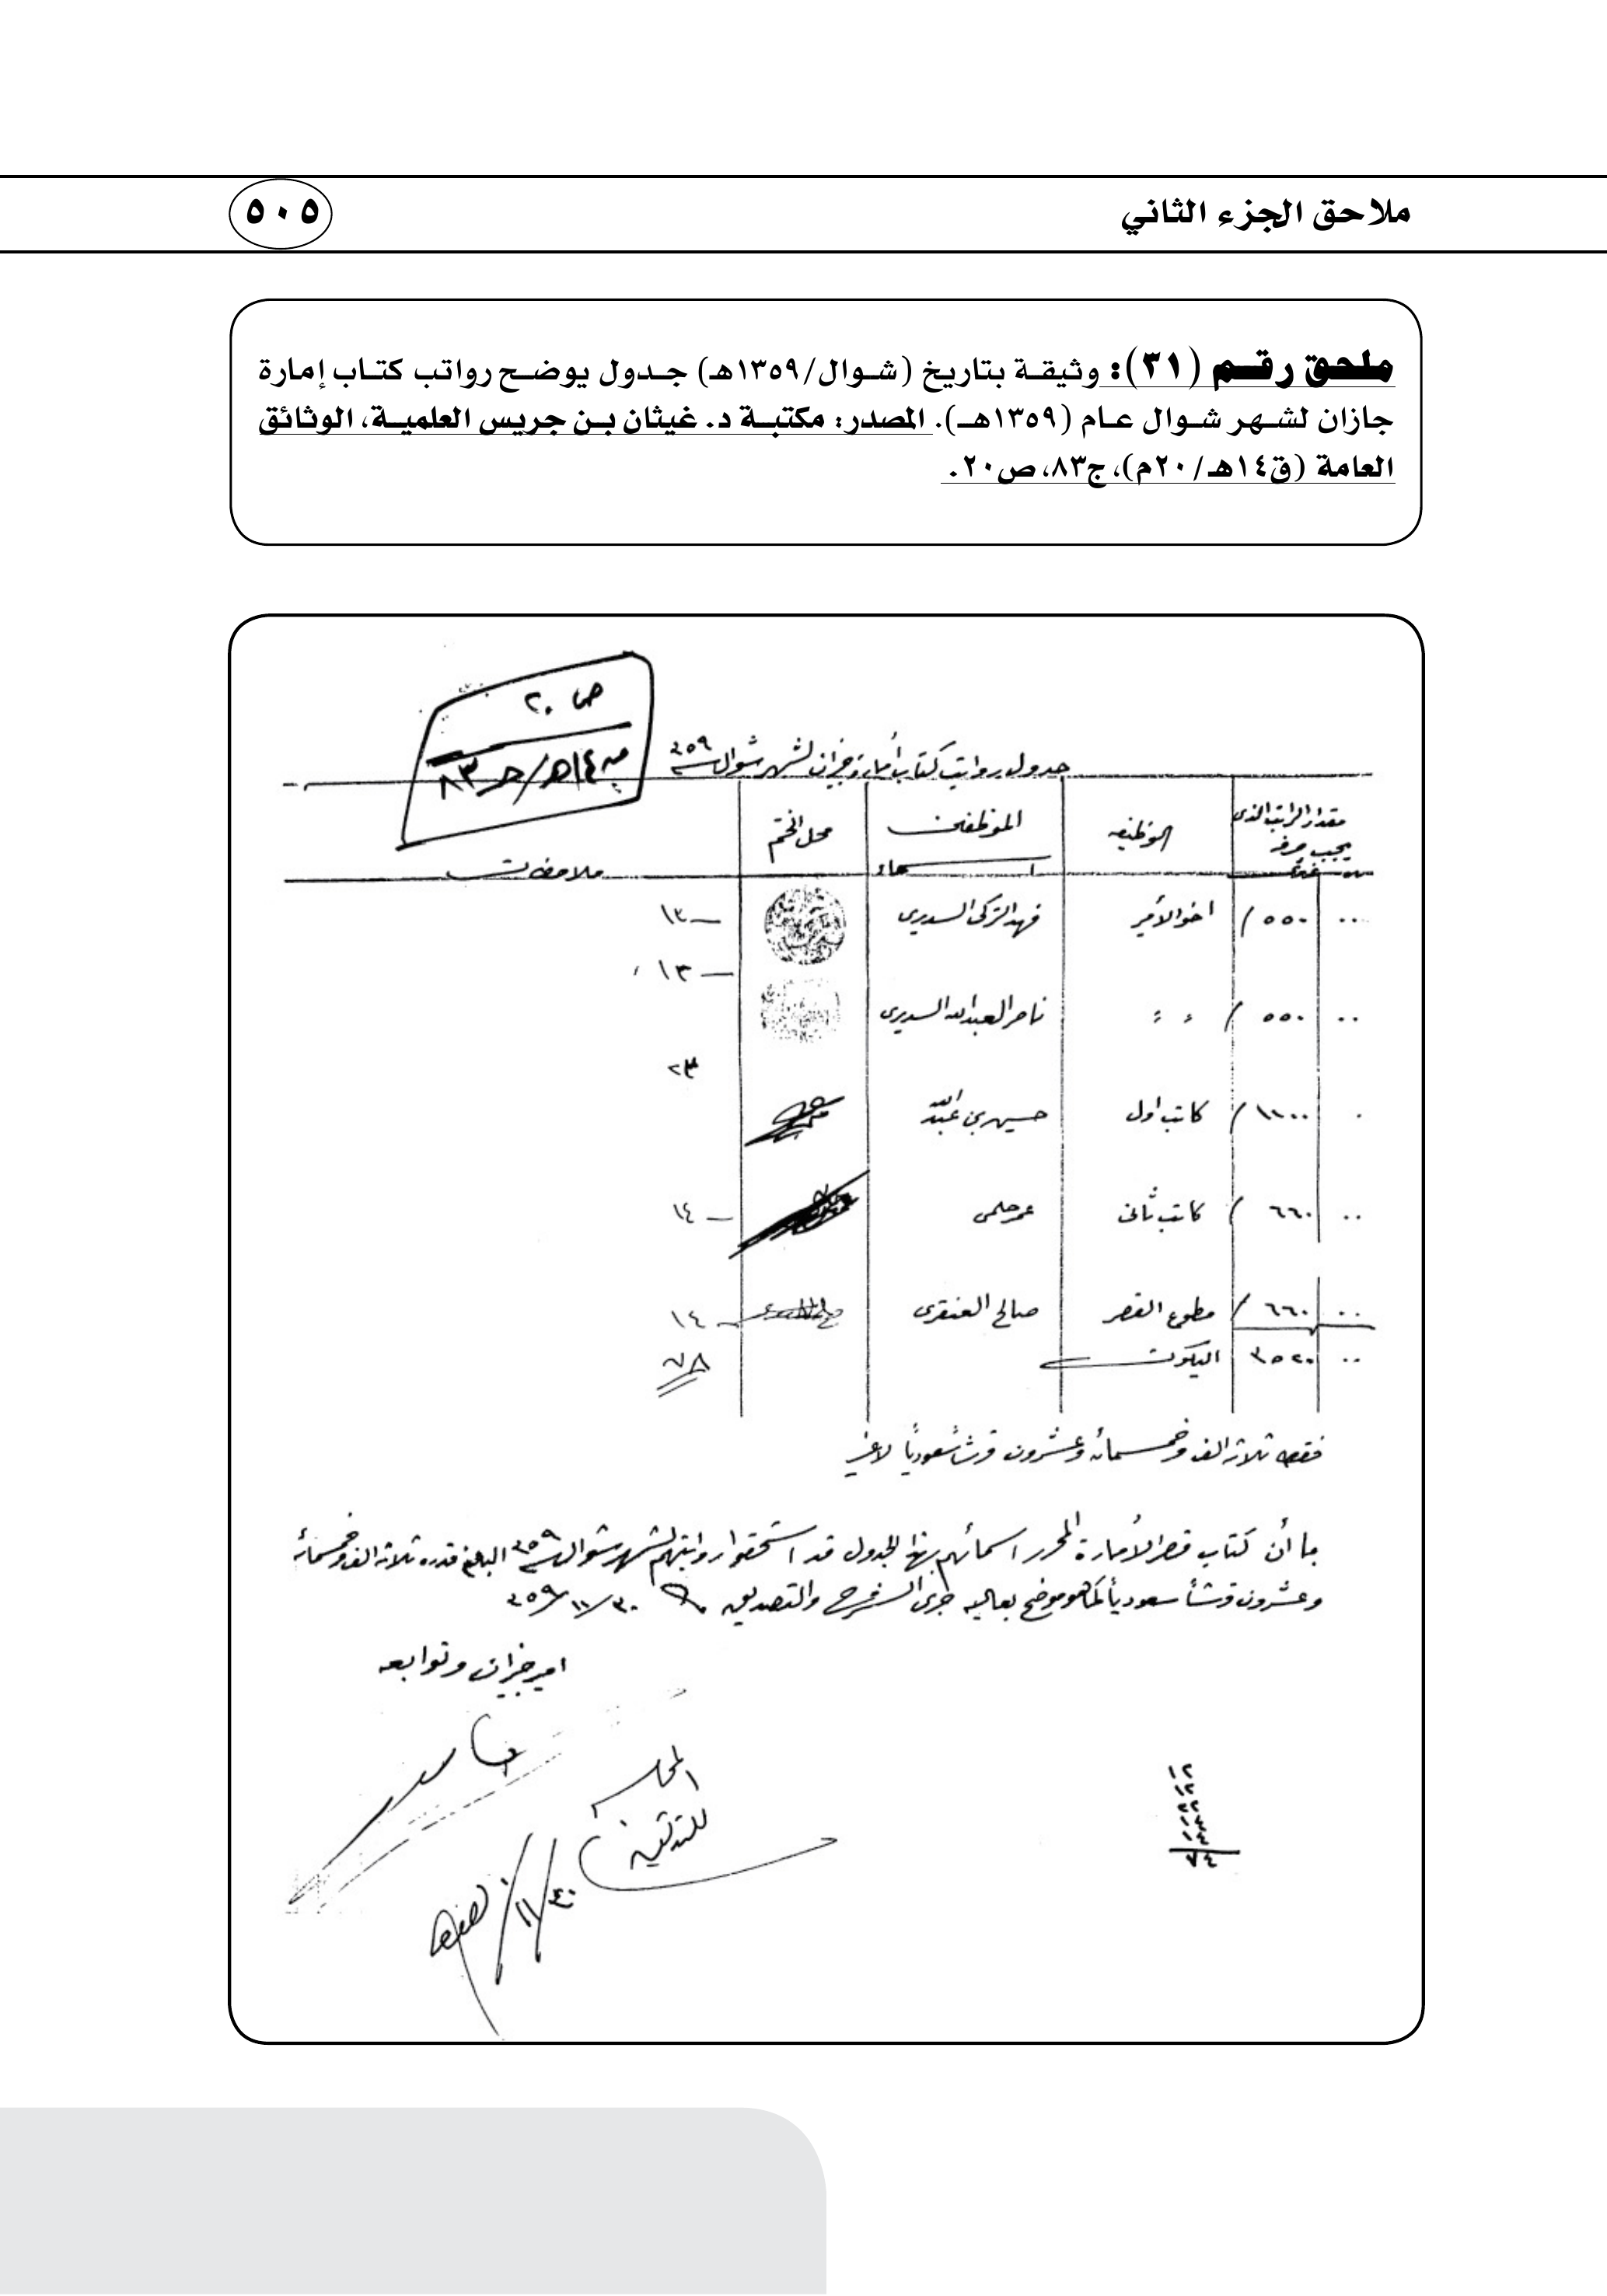 ملاحق الجزء الثاني
٥٠٥
ملحق رقم (٣١): وثيقة بتاريخ (شوال/١٣٥٩هـ) جدول يوضح رواتب كتاب إمارة
جازان لشهر شوال عام (١٣٥٩هـ). المصدر: مكتبة د. غيثان بن جريس العلمية، الوثائق
العامة (ق١٤هـ/٢٠م)، ج٨٣، ص٢٠.
ص ٢٠
ق١٤هـ/ج٨٣
جدول رواتب كتاب أمارة جيزان لشهر شوال سنة ٣٥٩
مقدار الراتب الذي يجب صرفه الوظيفه اسماء الموظفين محل الختم ملاحظات
٠٠ ٥٥٠/ اخو الأمير فهد التركي السديري ١٣
١٣
٠٠ ٥٥٠/ ناصر العبدالله السديري
٢٣
١١٠٠/ كاتب اول حسين بن عبدالله
٠٠ ٦٦٠/ كاتب ثاني عمر حلمي ١٤
٠٠ ٦٦٠/ مطوع القصر صالح العنقري ١٤
٠٠ ٣٥٢٠ اليكون
فقط ثلاثة الف وخمسمائة وعشرون قرشاً سعودياً لاغير
بما أن كتاب قصر الأمارة المحرر اسمائهم بهذا الجدول قد استحقوا رواتبهم لشهر شوال سنة ٣٥٩ البالغ قدره ثلاثة الف وخمسمائة
وعشرون قرشاً سعودياً كما هو موضح بعاليه جرى الشرح والتصديق ٣٠/١١/٣٥٩
امير جيزان وتوابعه
١٢
١٢
٧٤